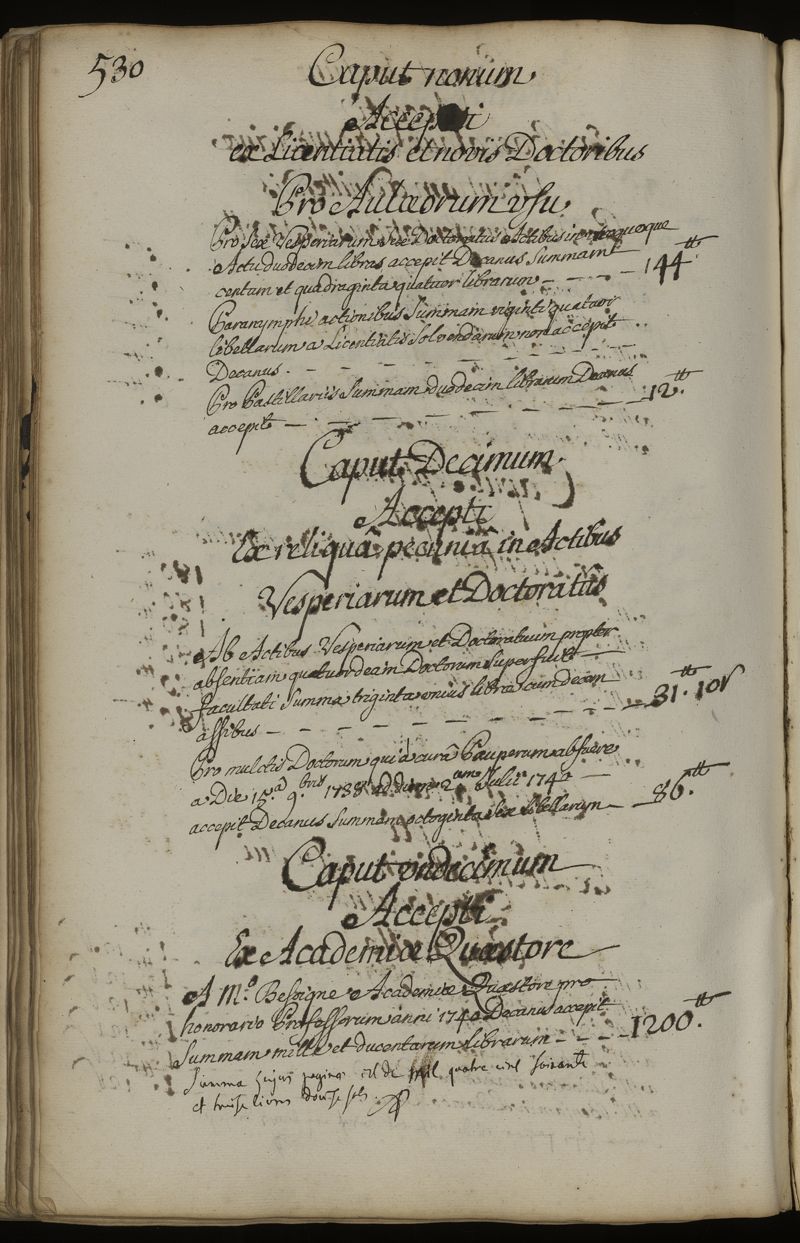 530
Caput nonum
Accepti
ex Licentiatis et novis Doctoribus
Pro Aulæorum usu
Pro sex Vesperiarum, sex Doctoratus Actibus in
Actu duodecim libras accepit Decanus Summam 144.tt
centum et quadraginta quatuor librarum
Paranymphi actionibus Summam viginti quatuor
libellarum a Licentiatis Solvendarum non accepit
Decanus.
Pro Pastillariis Summam duodecim librarum Decanus 12.tt
accepit
Caput Decimum
Accepti
Ex reliquâ pecuniâ in Actibus
Vesperiarum et Doctoratûs
Ab Actibus Vesperiarum et Doctoratuum propter
absentiam quatuordecim Doctorum Superfuit
facultati Summa triginta unius libræ cum decem
assibus 31.tt 10s
Pro mulctis Doctorum qui à curâ Pauperum abfuere
a Die 15.a 9.bris 1738 ad diem 2am Julii 1740
accepit Decanus Summam octoginta sex libellarum 86.tt
Caput undecimum
Accepti
Ex Academiæ Quæstore
A M.o Besoigne Academiæ Quæstore pro
honorario Professorum anni 1740 Decanus accepit
Summam mille et ducentarum librarum 1200.tt
Summa hujus paginæ est de mil quatre cens soixante
et treize livres dou<!-- -->ze sols